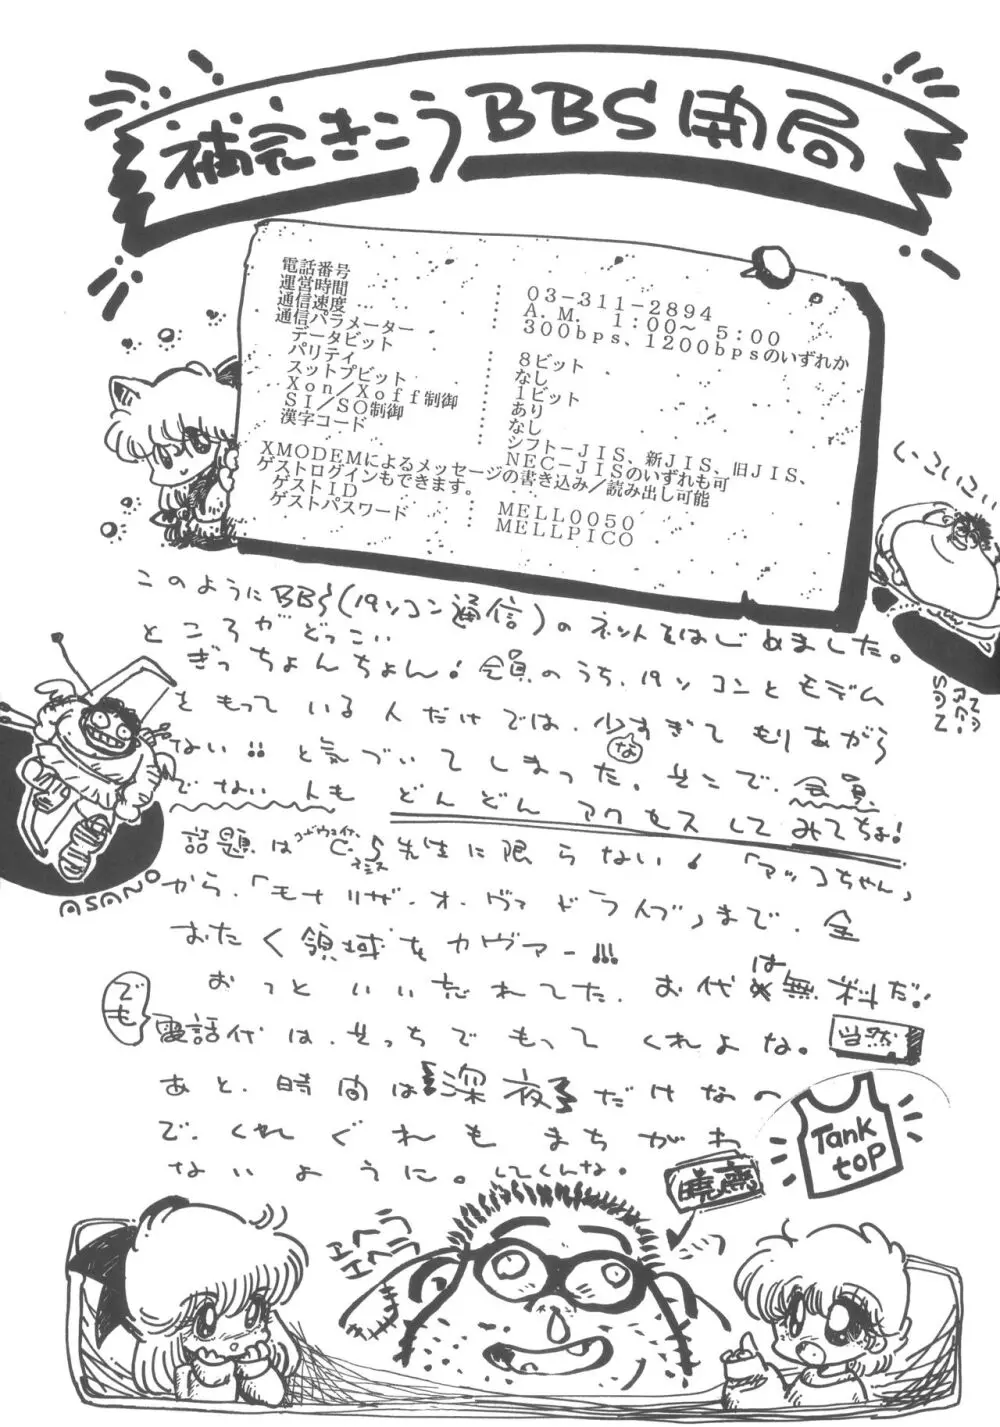 補完きこうBBS開局
電話番号 : 03-311-2894
運営時間 : A.M. 1:00~5:00
通信速度 : 300bps、1200bpsのいずれか
通信パラメーター
データビット : 8ビット
パリティ : なし
スットプビット : 1ビット
Xon/Xoff制御 : あり
SI/SO制御 : なし
漢字コード : シフト-JIS、新JIS、旧JIS、
NEC-JISのいずれも可
XMODEMによるメッセージの書き込み/読み出し可能
ゲストログインもできます。
ゲストID : MELL0050
ゲストパスワード : MELLPICO
このようにBBS(パソコン通信)のネットをはじめました。
ところがどっこい
ぎっちょんちょん!会員のうち、パソコンとモデム
をもっている人だけでは、少なすぎてもりあがら
ない!!と気づいてしまった。そこで、会員
でない人もどんどんアクセスしてみてちょ!
話題はC.S先生に限らない!「アッコちゃん」
から、「モナリザ・オーヴァドライブ」まで、全
おたく領域をカヴァー!!!
おっといい忘れてた、お代は無料だ!
でも
電話代は、そっちでもってくれよな。
当然
あと、時間は深夜だけなの
で、くれぐれもまちがわ
ないように。してくんな。
Tank
top
エヘラ
エヘラ
ASANO